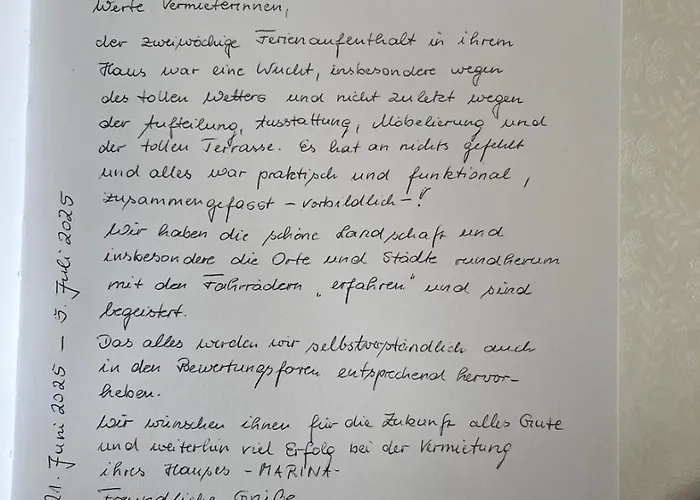 Werte Vermieterinnen,
der zweiwöchige Ferienaufenthalt in ihrem
Haus war eine Wucht, insbesondere wegen
des tollen Wetters und nicht zuletzt wegen
der Aufteilung, Ausstattung, Möbelierung und
der tollen Terrasse. Es hat an nichts gefehlt
und alles war praktisch und funktional,
zusammengefasst - vorbildlich -!
Wir haben die schöne Landschaft und
insbesondere die Orte und Städte rundherum
mit den Fahrrädern „erfahren" und sind
begeistert.
Das alles werden wir selbstverständlich auch
in den Bewertungsforen entsprechend hervor-
heben.
Wir wünschen ihnen für die Zukunft alles Gute
und weiterhin viel Erfolg bei der Vermietung
ihres Hauses - MARINA -
Freundliche Grüße
21. Juni 2025 - 5. Juli 2025